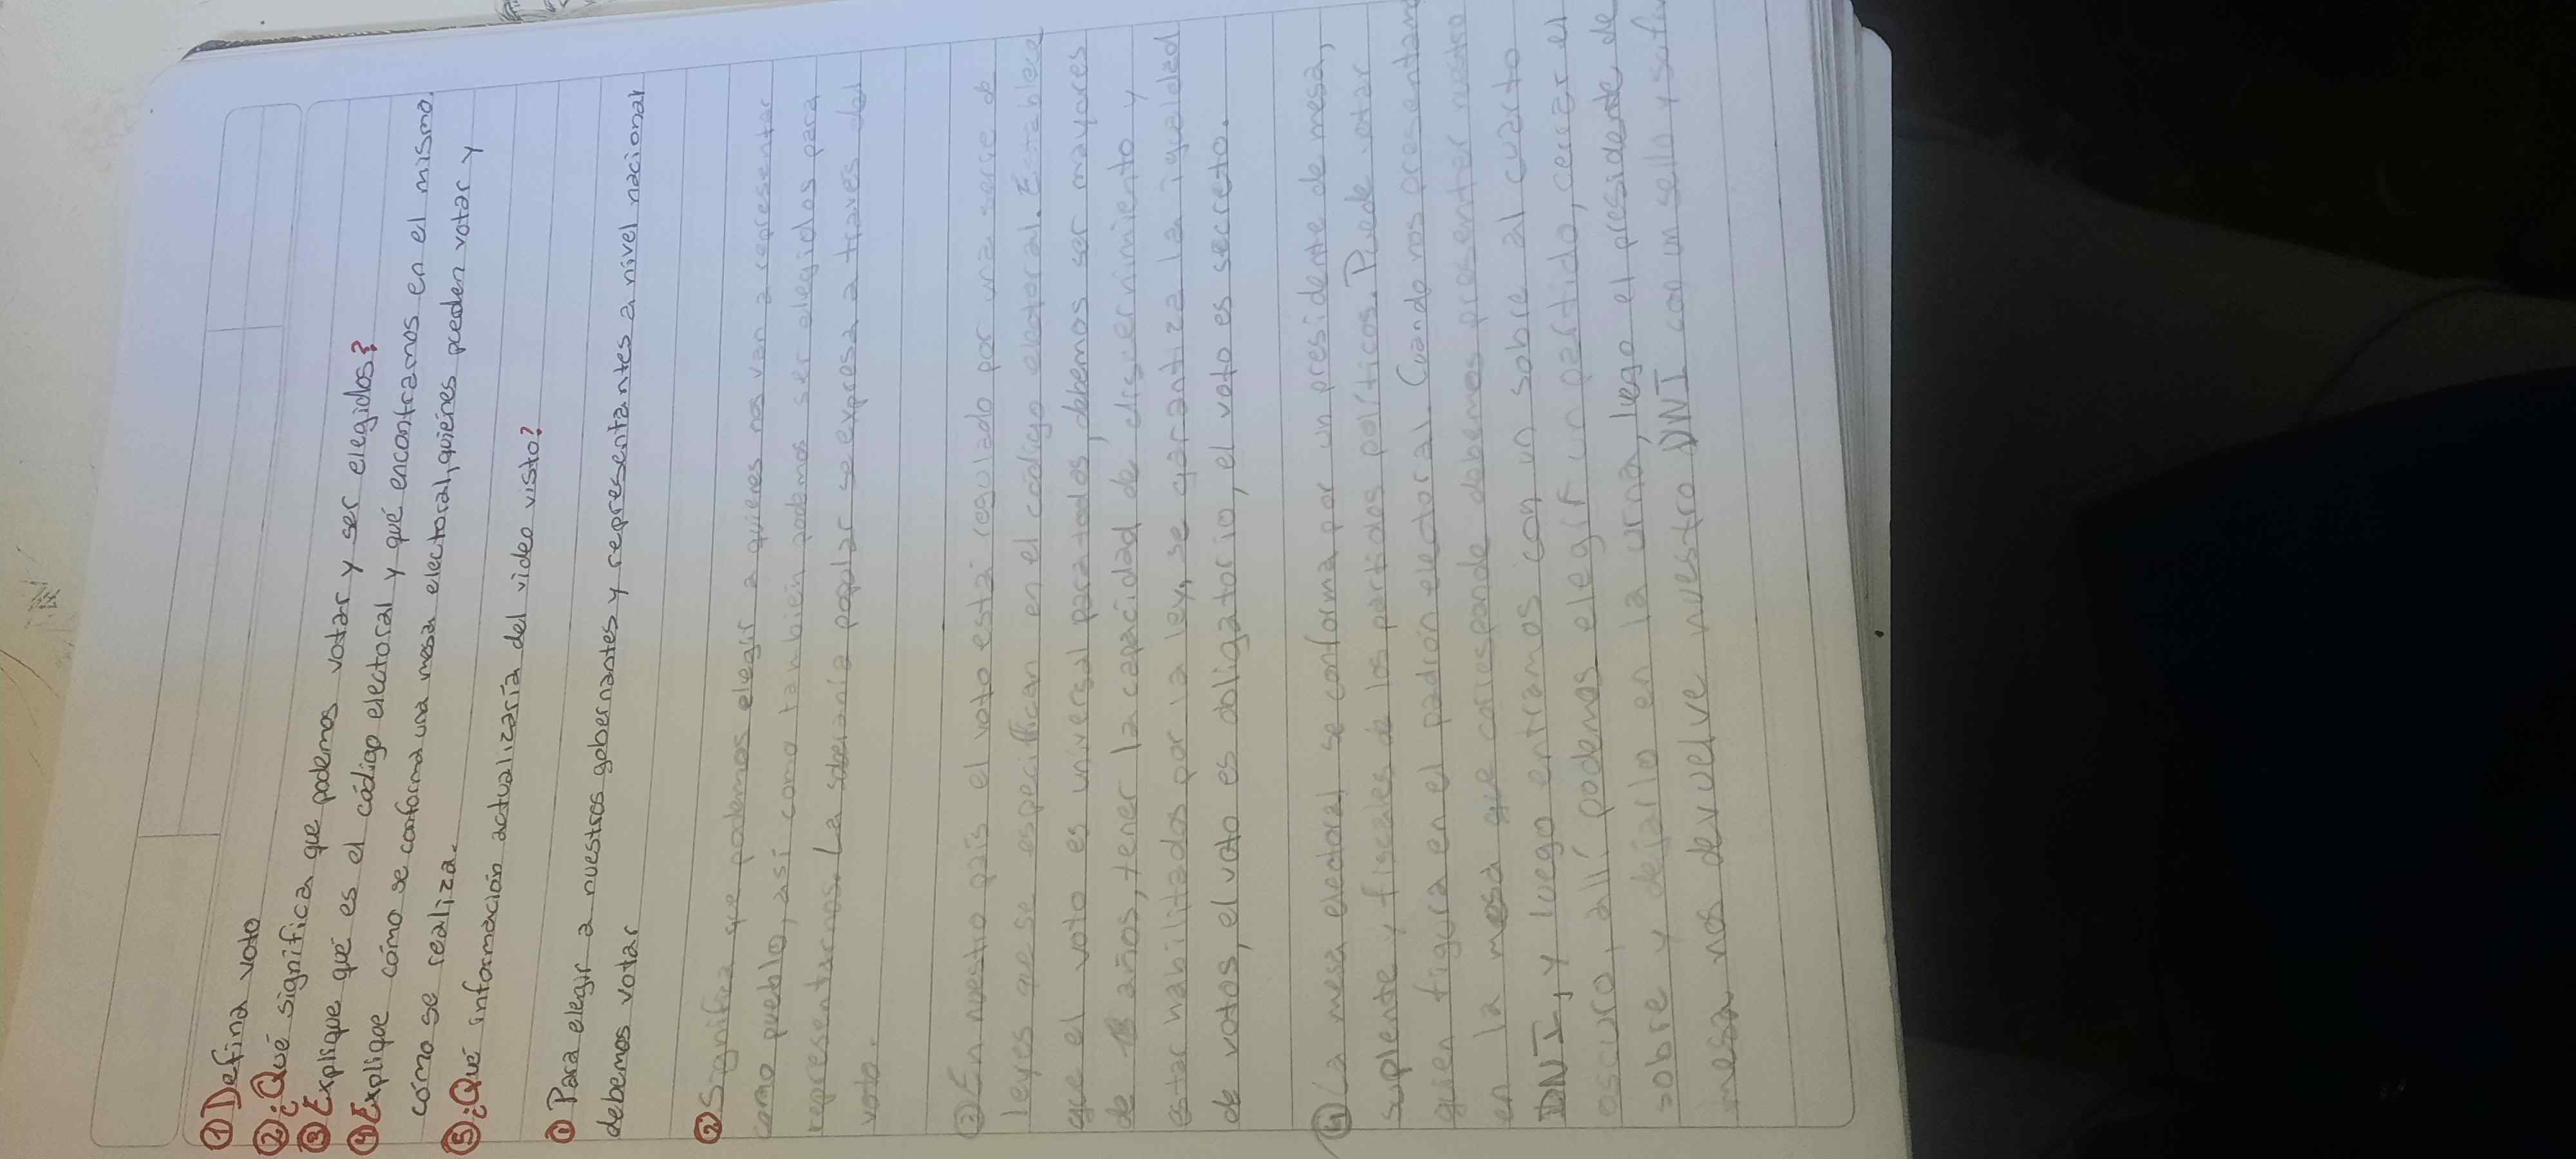 ① Defina voto
② ¿Qué significa que podemos votar y ser elegidos?
③ Explique qué es el código electoral y qué encontramos en el mismo.
④ Explique cómo se conforma una mesa electoral, quiénes pueden votar y
cómo se realiza.
⑤ ¿Qué información actualizaría del video visto?
① Para elegir a nuestros gobernantes y representantes a nivel nacional
debemos votar
② Significa que podemos elegir a quienes nos van a representar
como pueblo, así como también podemos ser elegidos para
representarnos. La soberanía popular se expresa a través del
voto.
③ En nuestro país el voto está regulado por una serie de
leyes que se especifican en el código electoral. Establece
que el voto es universal para todos, debemos ser mayores
de 18 años, tener la capacidad de discernimiento y
estar habilitados por la ley, se garantiza la igualdad
de votos, el voto es obligatorio, el voto es secreto.
④ La mesa electoral se conforma por un presidente de mesa,
suplente y fiscales de los partidos políticos. Puede votar
quien figura en el padrón electoral. Cuando nos presentamos
en la mesa que corresponde debemos presentar nuestro
DNI, y luego entramos con un sobre al cuarto
oscuro, allí podemos elegir un partido, cerrar el
sobre y dejarlo en la urna, luego el presidente de
mesa nos devuelve nuestro DNI con un sello y su